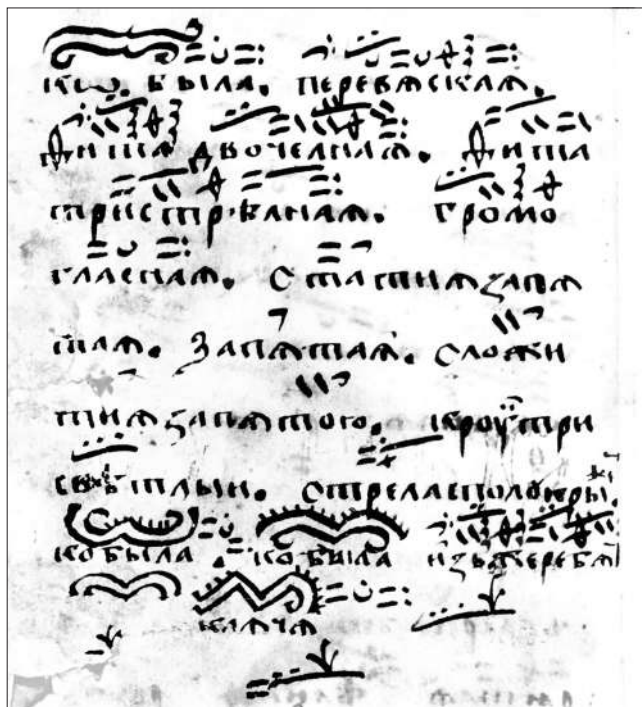 кѡ была. перевѧскаѧ.
Ѳитѧ двочелнаѧ. Ѳита
тристрѣлнаѧ. громо
гласнаѧ. Статиѧ запѧ
таѧ. Запѧтаѧ. сложи
тиѧ запѧтого.
свѣтлыи. Стрела
кобыла кобыла
клѧчѧ